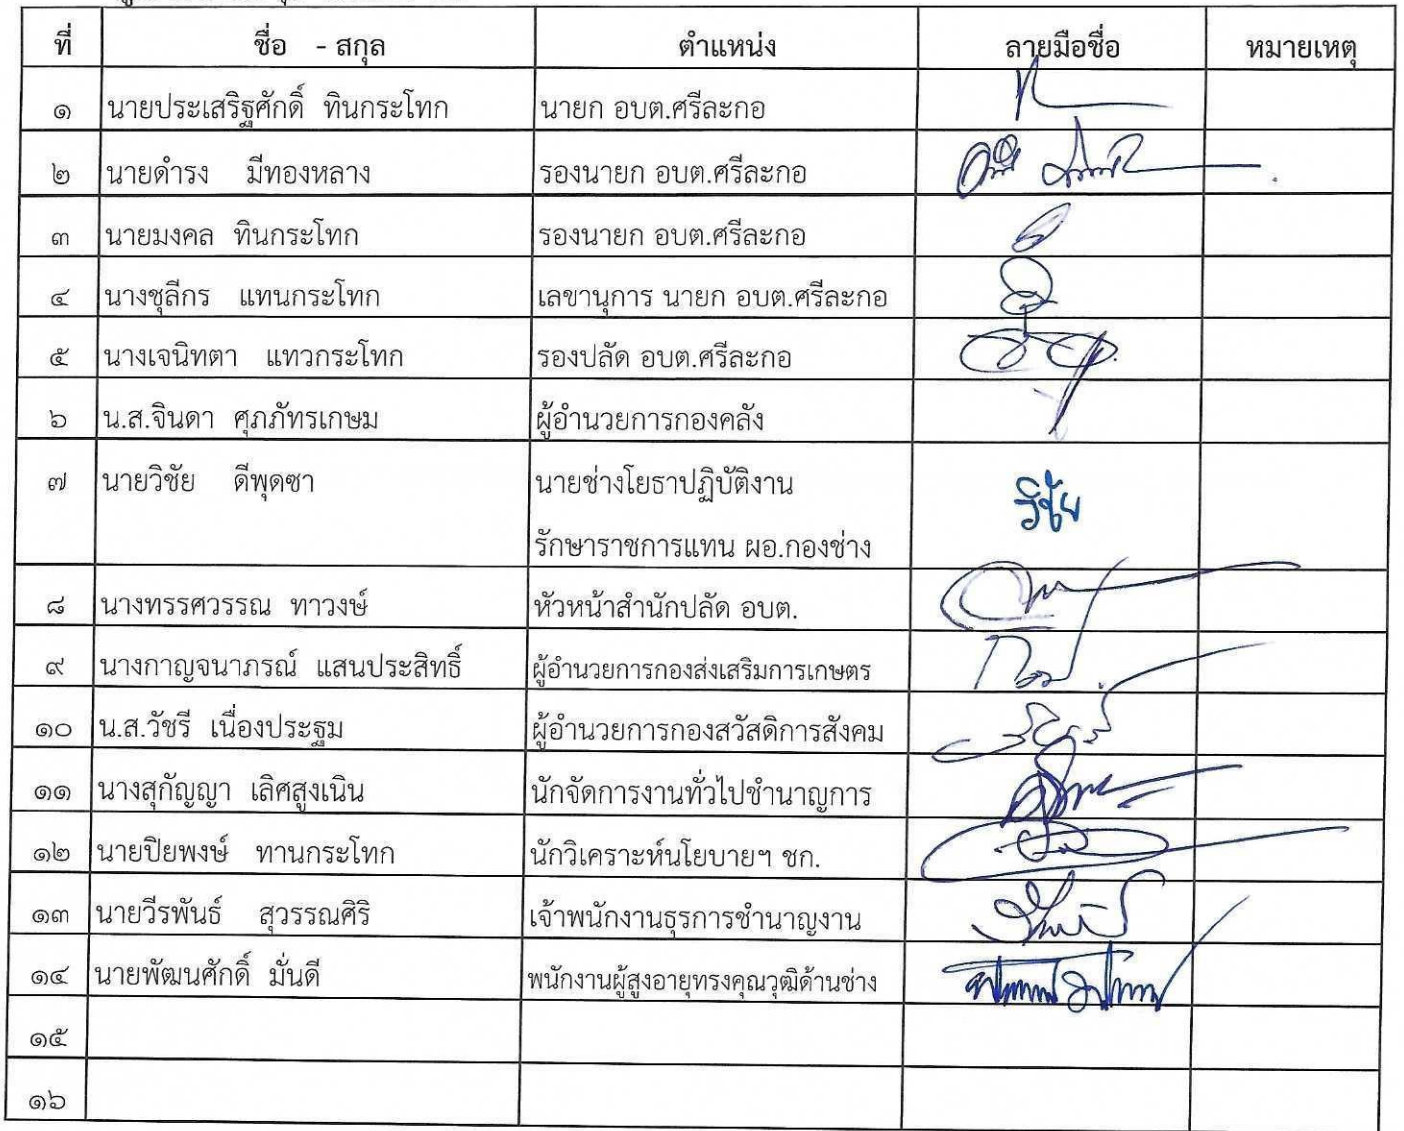 ที่ ชื่อ - สกุล ตำแหน่ง ลายมือชื่อ หมายเหตุ
๑ นายประเสริฐศักดิ์ ทินกระโทก นายก อบต.ศรีละกอ
๒ นายดำรง มีทองหลาง รองนายก อบต.ศรีละกอ
๓ นายมงคล ทินกระโทก รองนายก อบต.ศรีละกอ
๔ นางชุลีกร แทนกระโทก เลขานุการ นายก อบต.ศรีละกอ
๕ นางเจนิทตา แทวกระโทก รองปลัด อบต.ศรีละกอ
๖ น.ส.จินดา ศุภภัทรเกษม ผู้อำนวยการกองคลัง
๗ นายวิชัย ดีพุดซา นายช่างโยธาปฏิบัติงาน วิชัย
รักษาราชการแทน ผอ.กองช่าง
๘ นางทรรศวรรณ ทาวงษ์ หัวหน้าสำนักปลัด อบต.
๙ นางกาญจนาภรณ์ แสนประสิทธิ์ ผู้อำนวยการกองส่งเสริมการเกษตร
๑๐ น.ส.วัชรี เนื่องประฐม ผู้อำนวยการกองสวัสดิการสังคม
๑๑ นางสุกัญญา เลิศสูงเนิน นักจัดการงานทั่วไปชำนาญการ
๑๒ นายปิยพงษ์ ทานกระโทก นักวิเคราะห์นโยบายฯ ชก.
๑๓ นายวีรพันธ์ สุวรรณศิริ เจ้าพนักงานธุรการชำนาญงาน
๑๔ นายพัฒนศักดิ์ มั่นดี พนักงานผู้สูงอายุทรงคุณวุฒิด้านช่าง
๑๕
๑๖